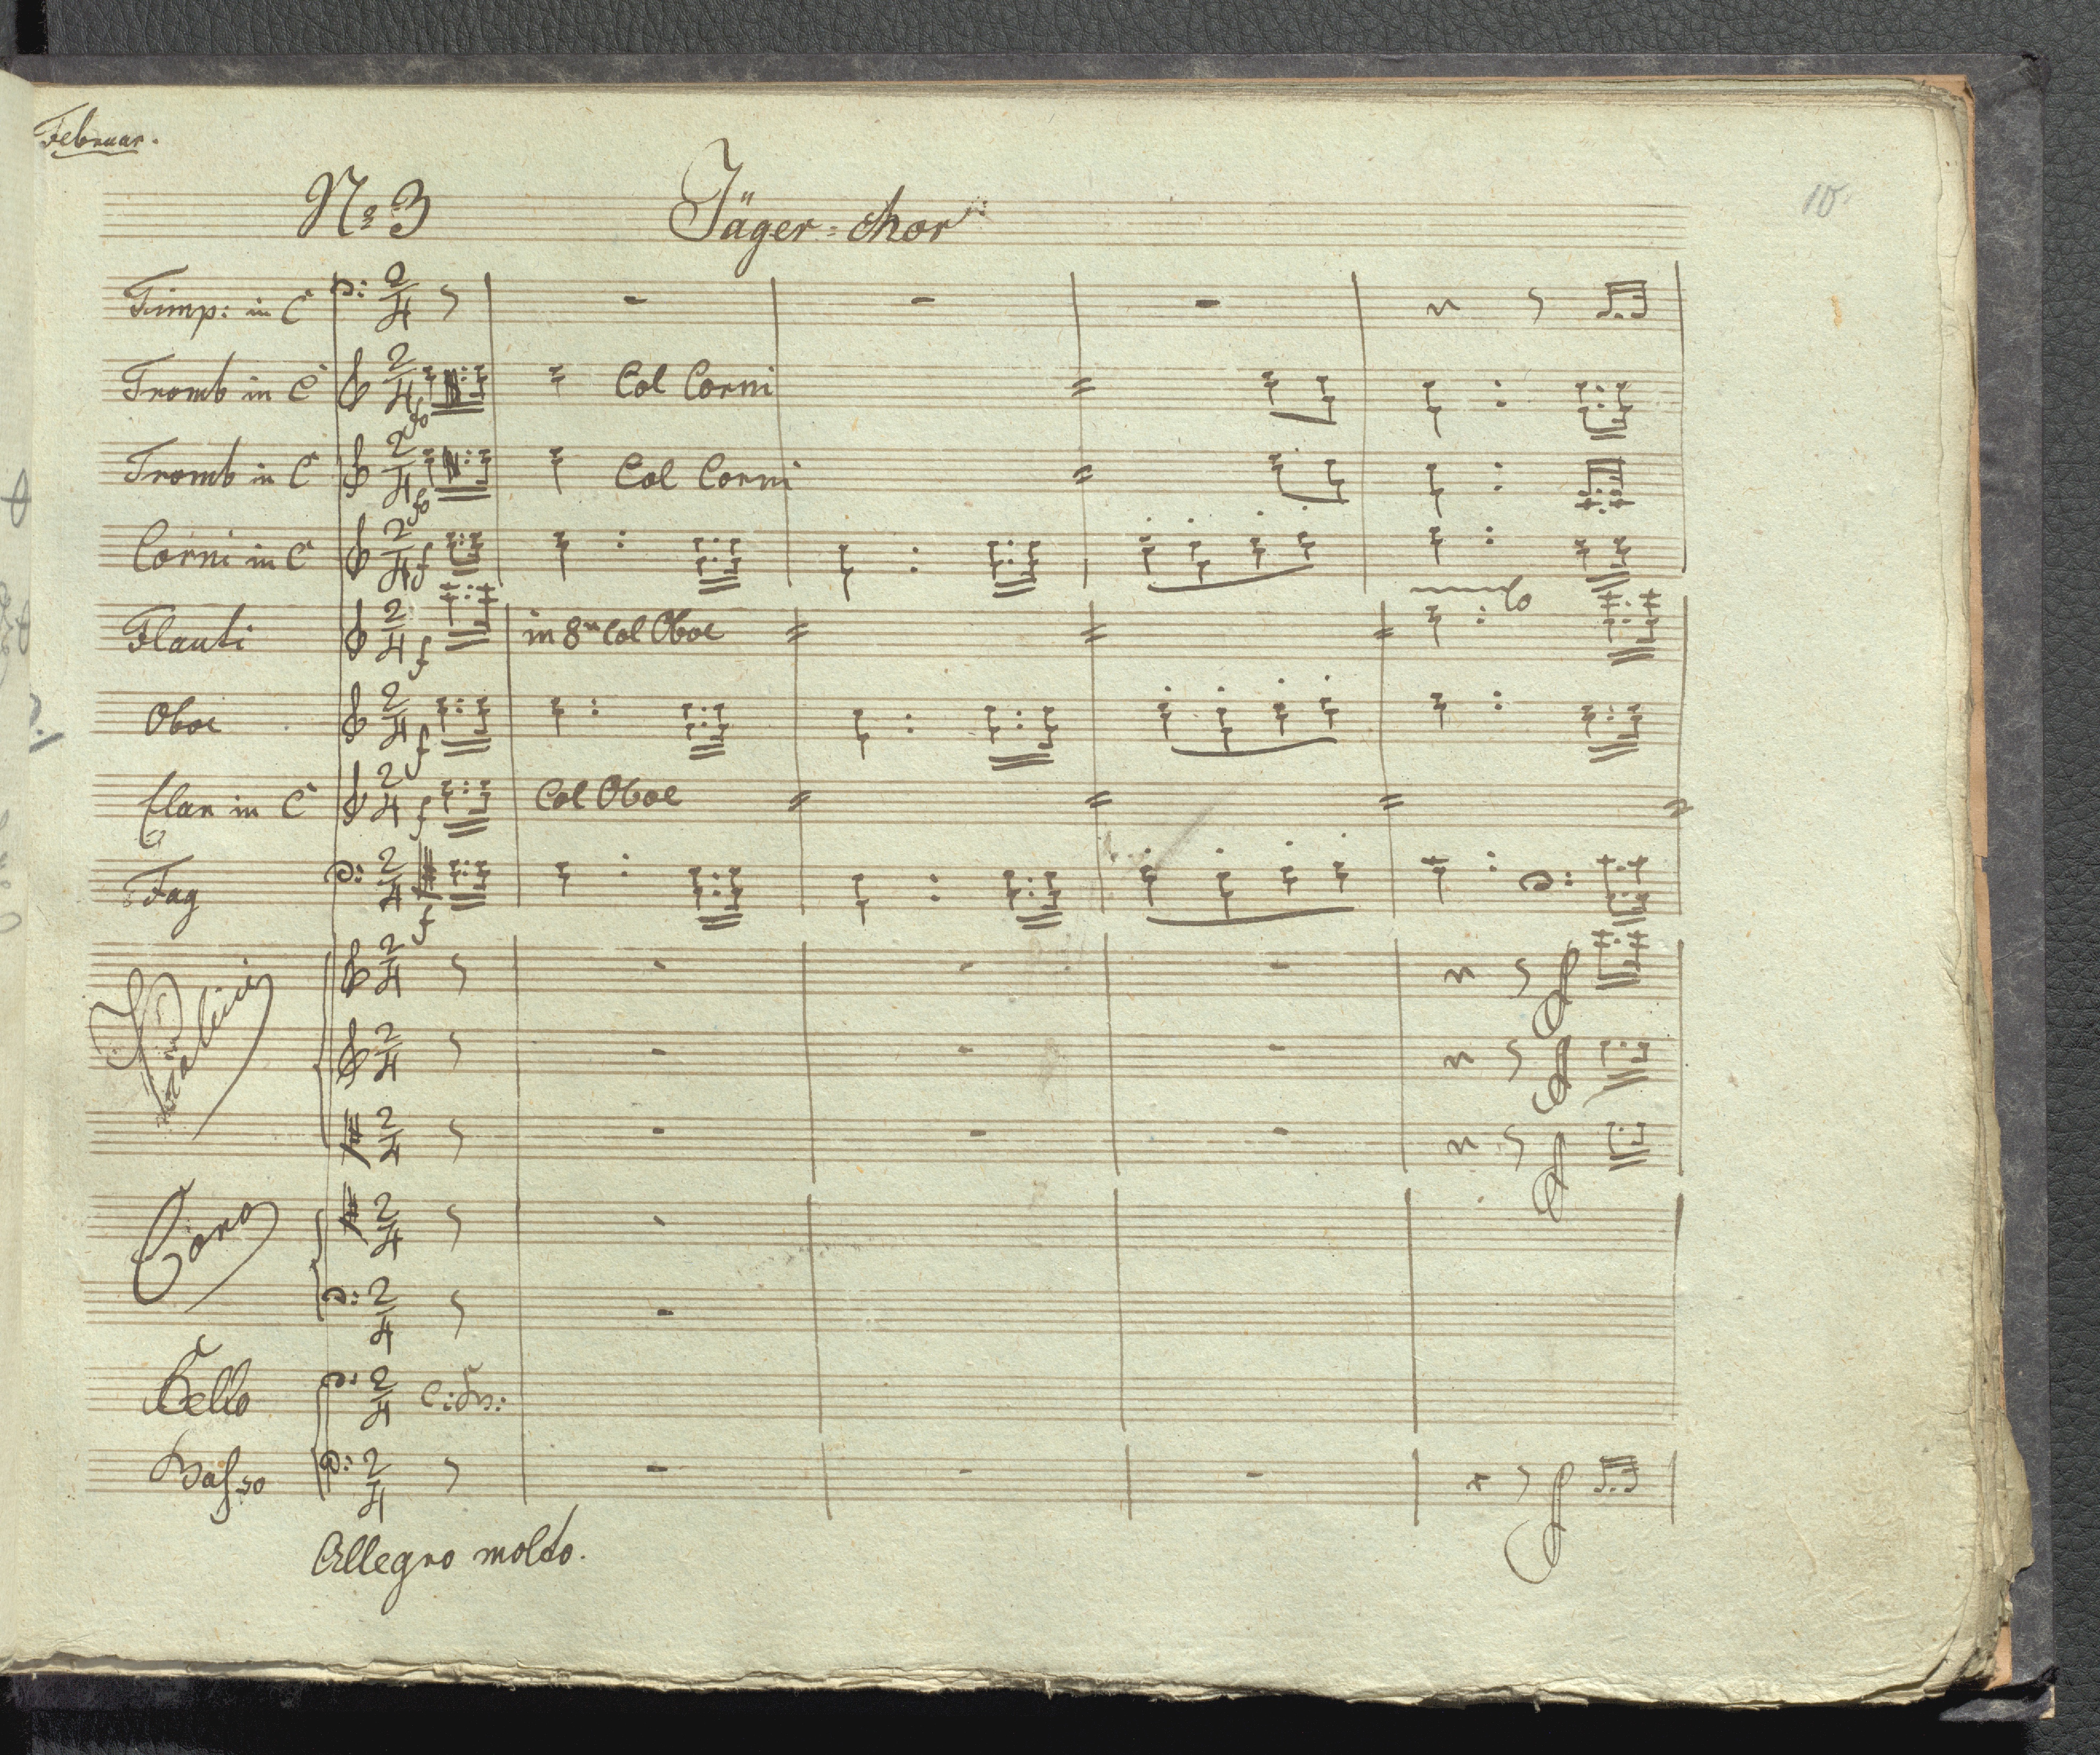 Februar.
No 3 Jäger=chor
10.
Timp: in C
Tromb in C Col Corni
Tromb in C Col Corni
Corni in C
Flauti in 8va Col Oboe
Oboe
Clar in C Col Oboe
Fag
Violini
Coro
Cello
Basso
Allegro molto.